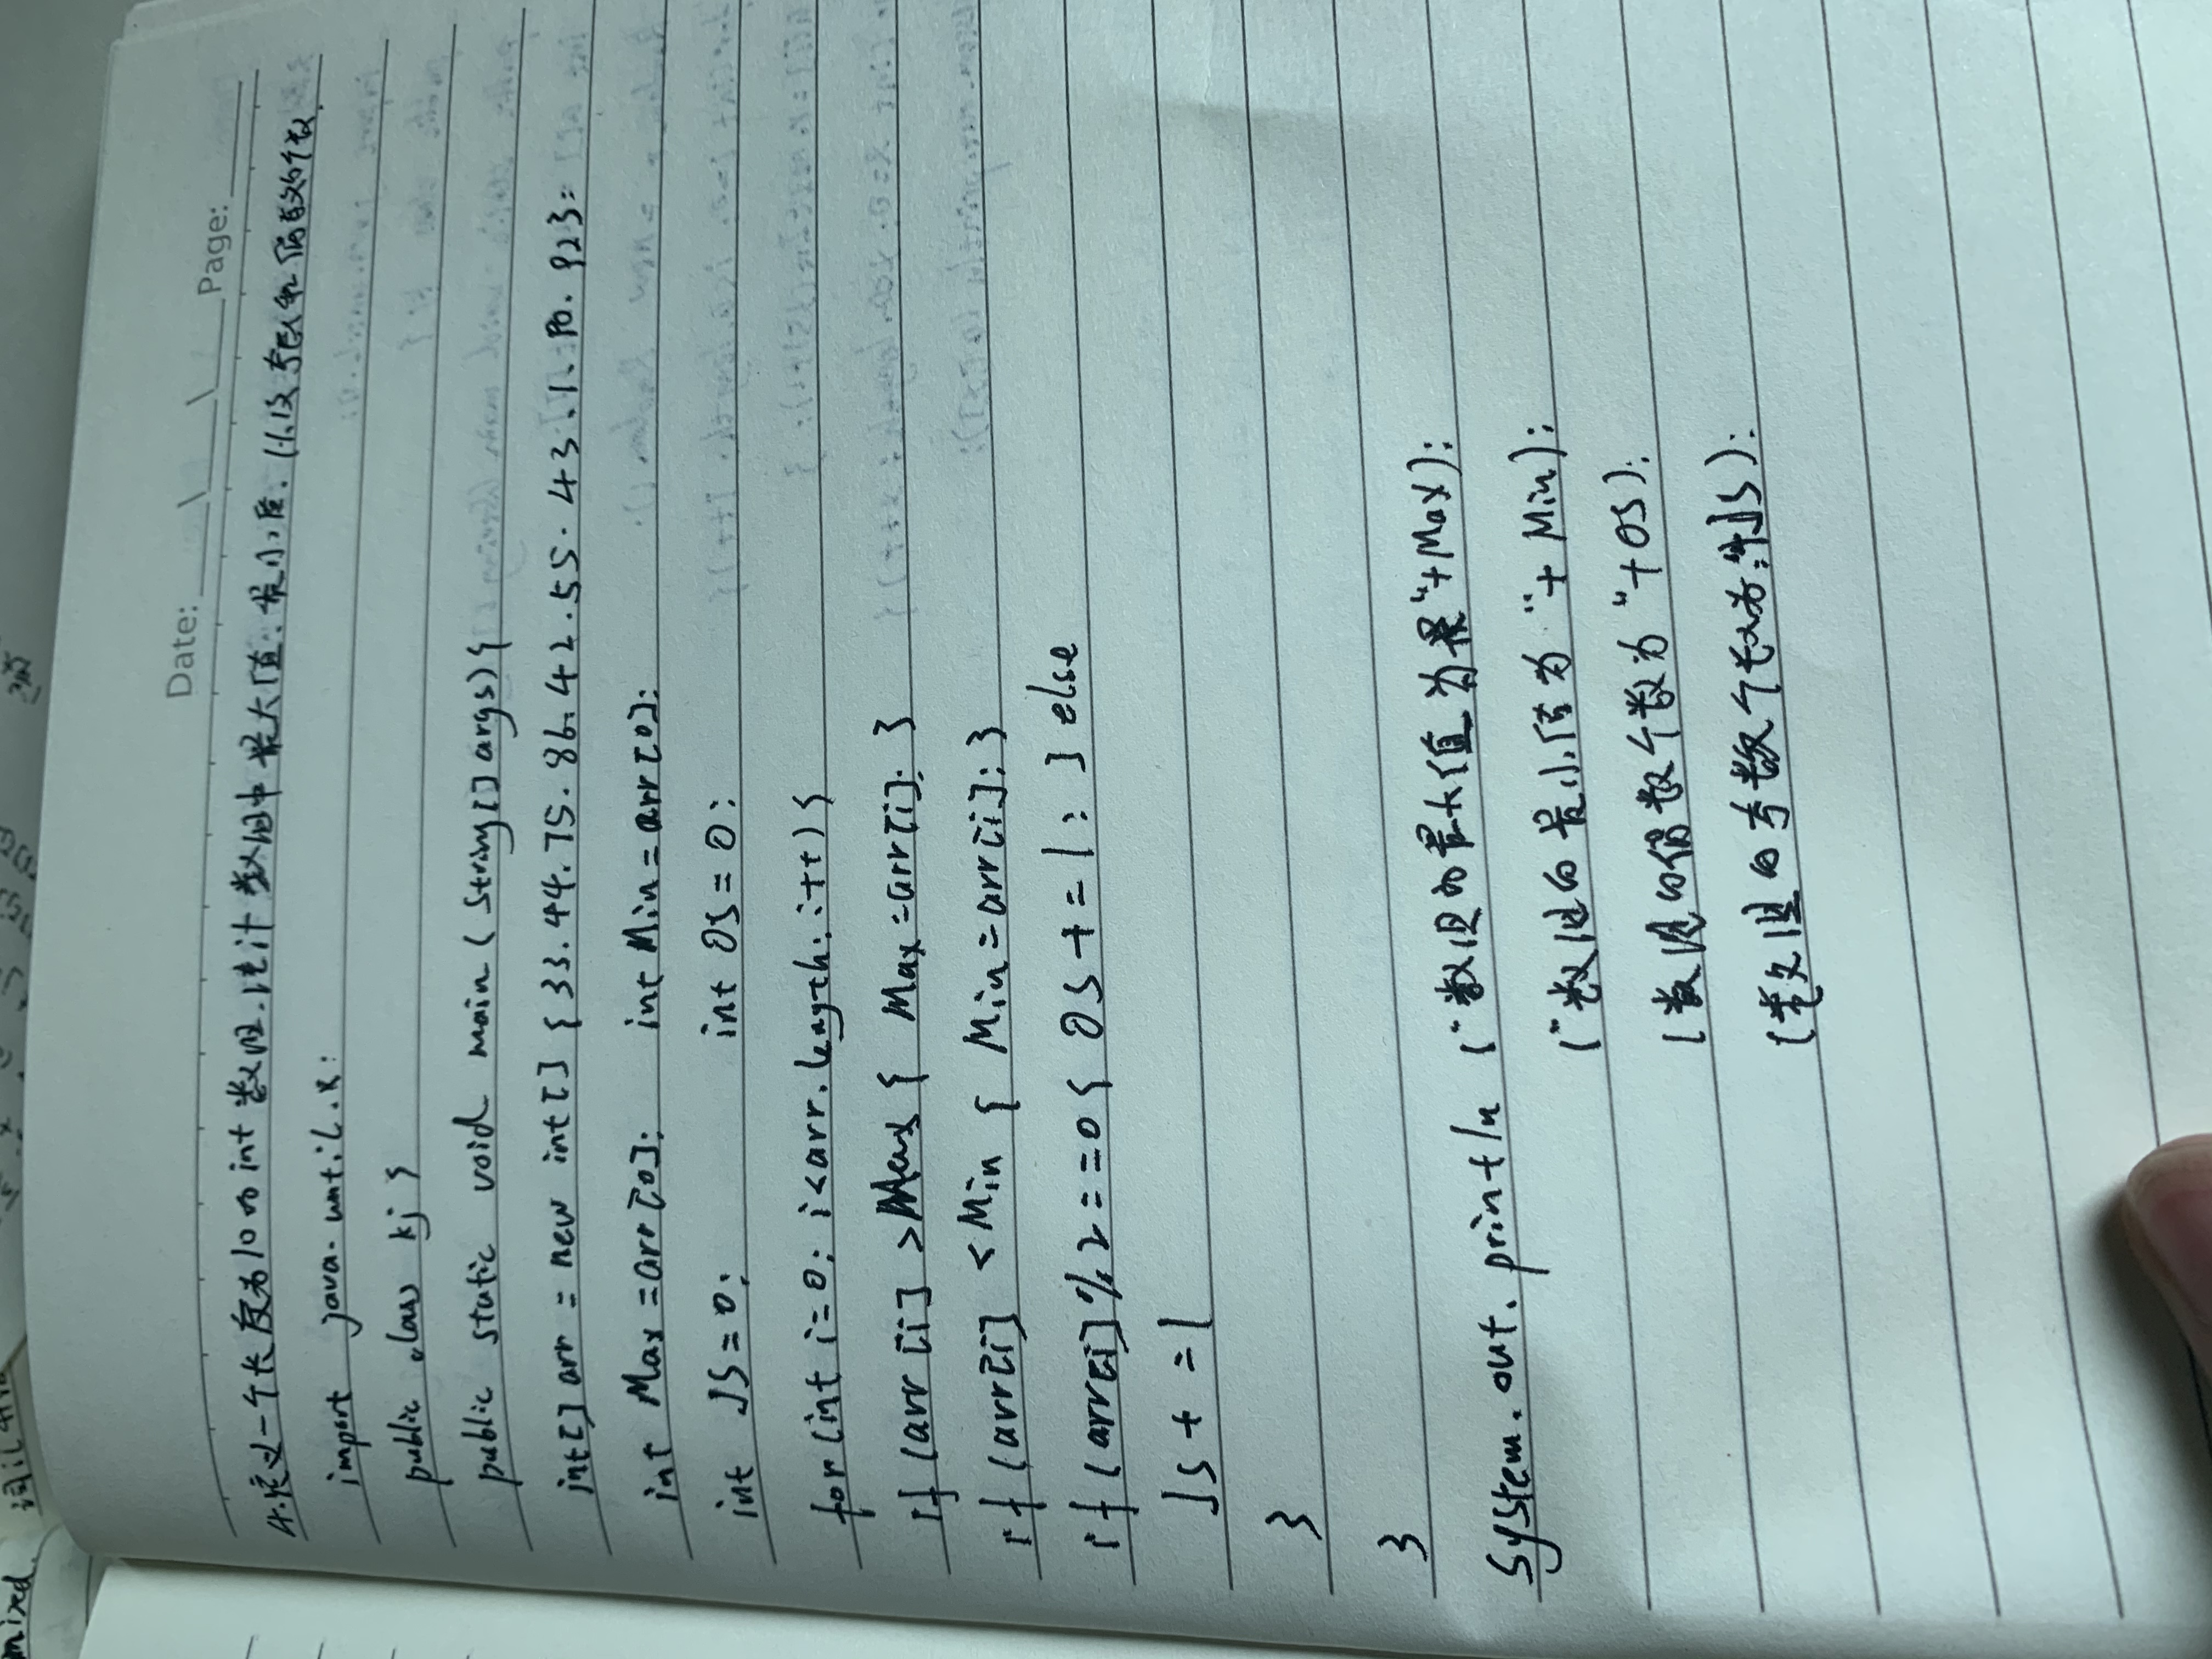 Date: Page:
4.定义一个长度为10的int数组.统计数组中最大值.最小值.以及奇数和偶数的个数.
import java.unti(.*:
public class kj {
public static void main (string[] args){
int[] arr = new int[] {33.44.75.86.42.55.43.1.90.923:
int Max =arr[0]: int Min=arr[0]:
int JS=0: int OS=0:
for(int i=0: i<arr.length:i++){
If (arr[i] >Max{ Max=arr[i]: }
If (arr[i] <Min { Min=arr[i]: }
If (arr[i]%2==0{ OS+=1: } else
JS+=1
}
}
System.out.println ("数组的最大值为"+Max):
("数组的最小值为"+Min):
(数组的偶数个数为"+OS):
(数组的奇数个数为:"+JS):